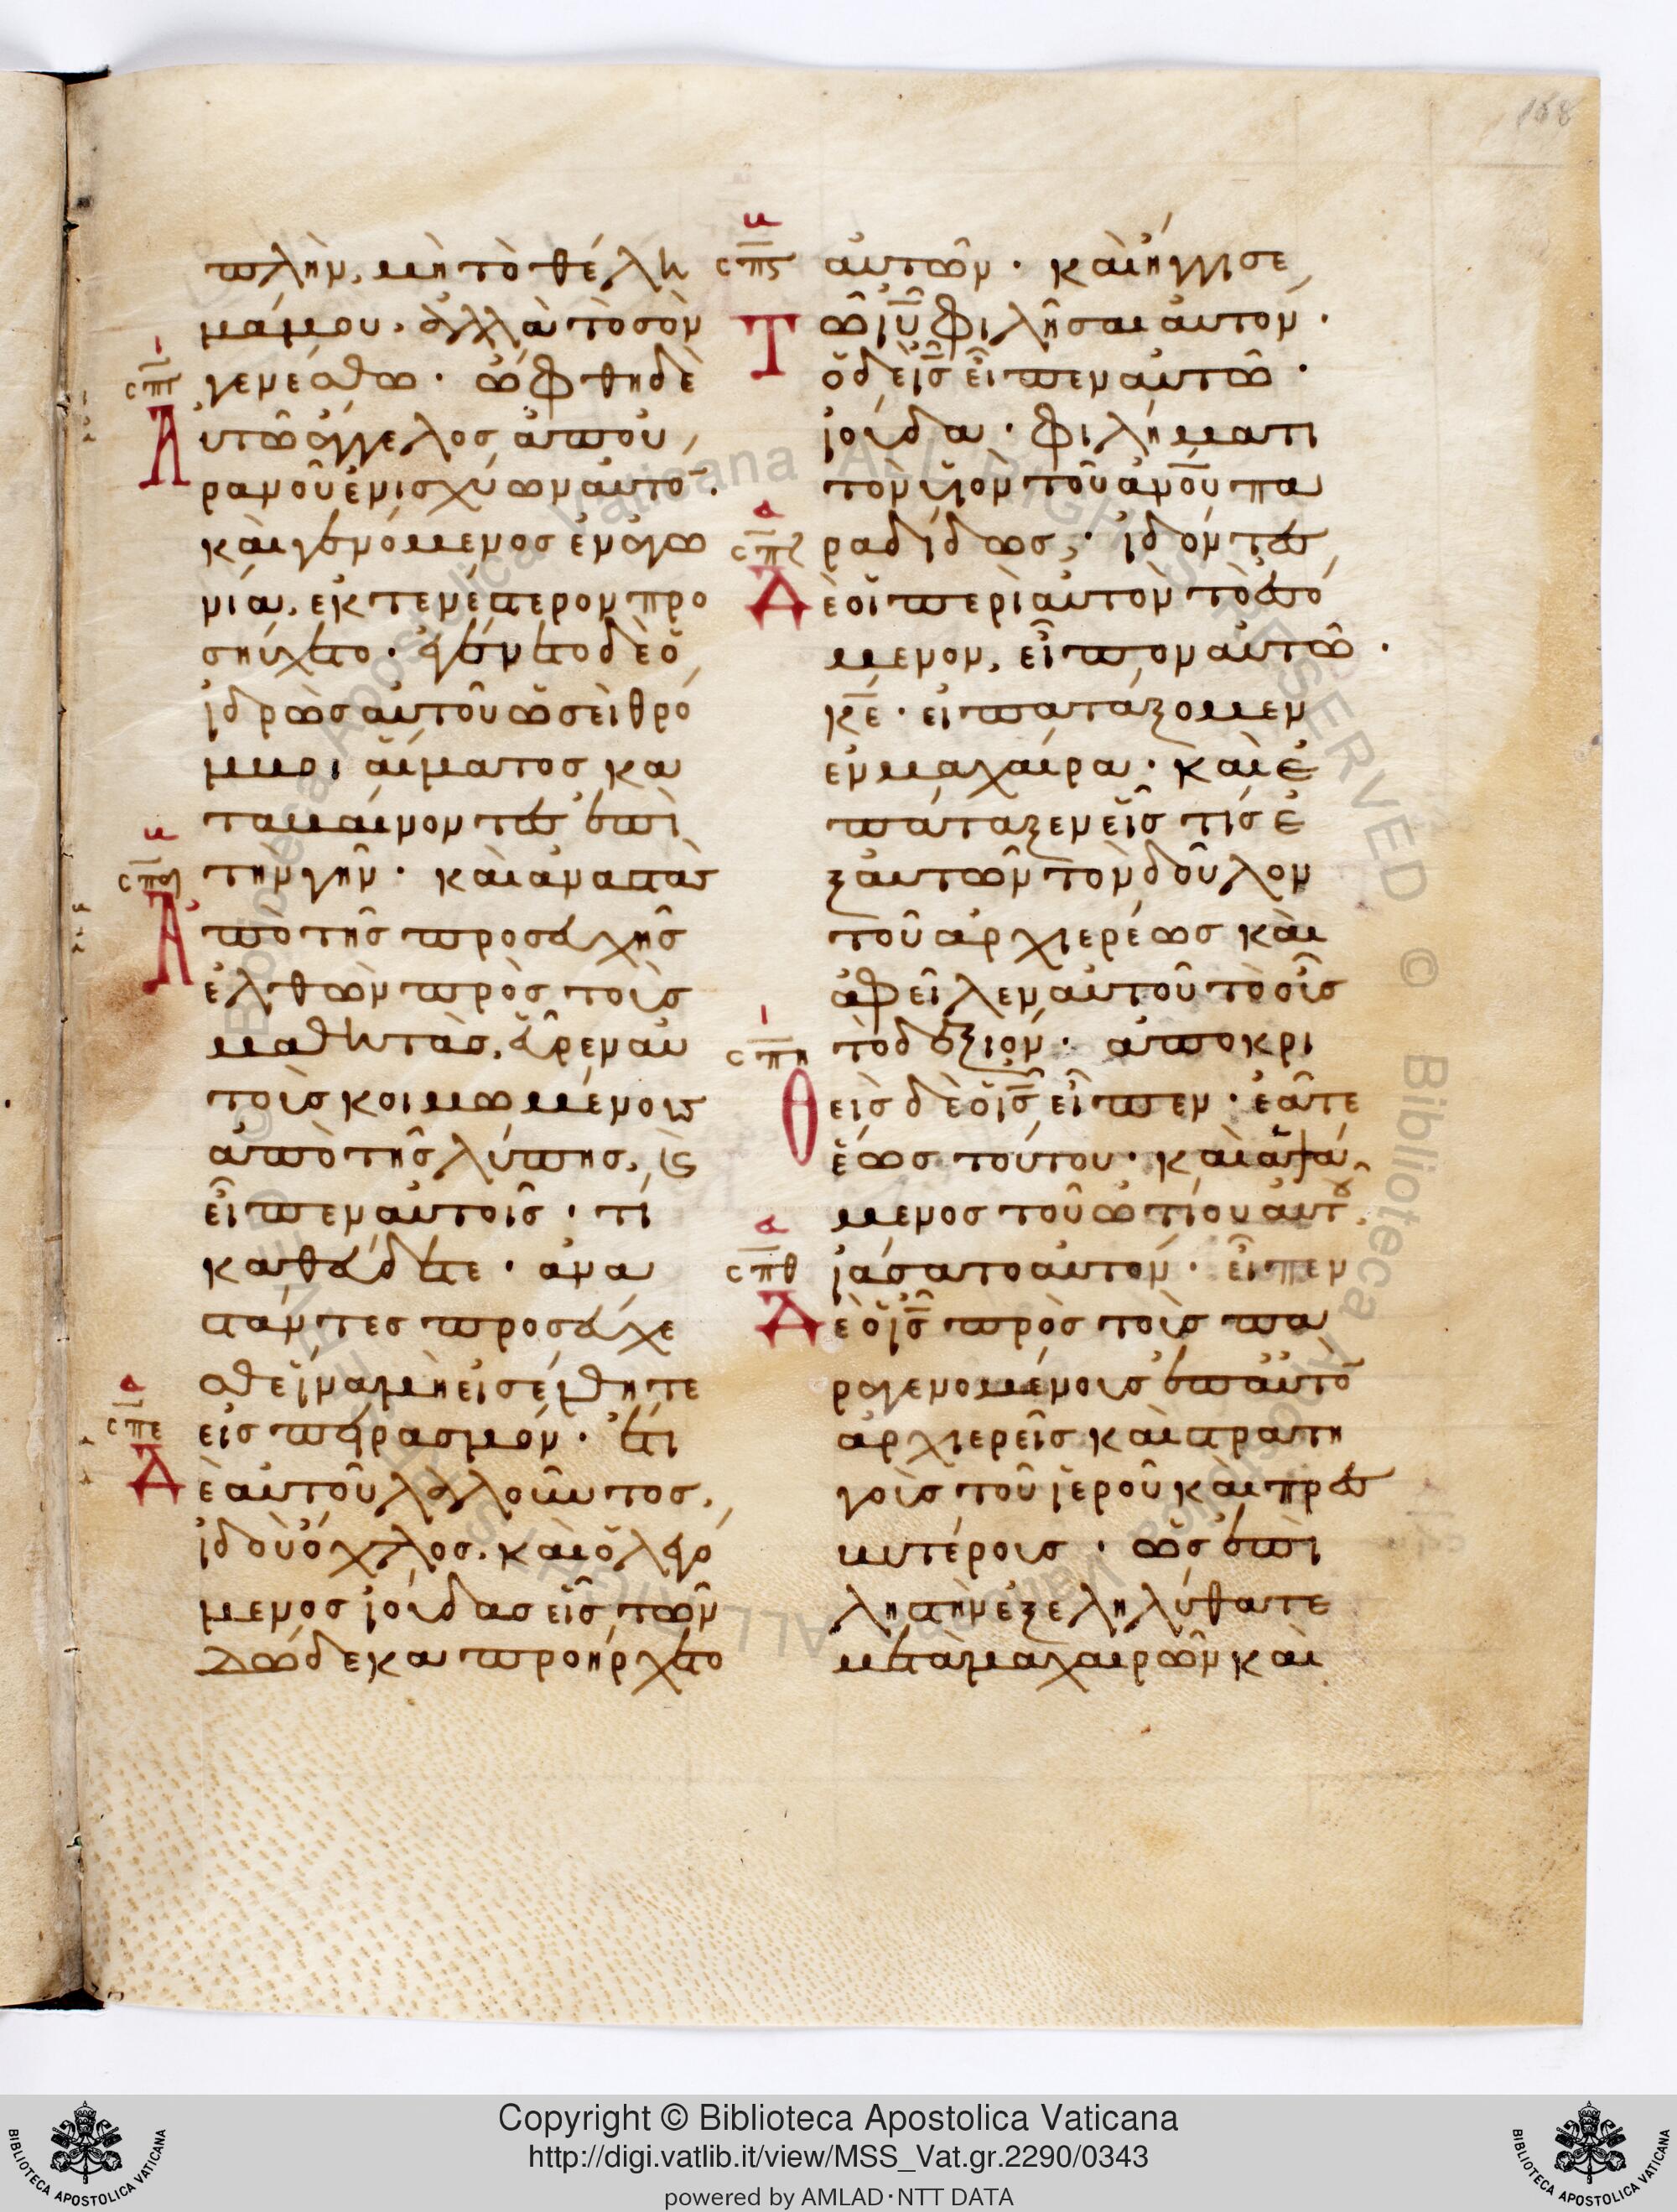 168
πλὴν, μὴ τὸ θέλη
μά μου· ἀλλὰ τὸ σὸν
ι
σπγ
γενέσθω· ὤφθη δὲ
Αὐτῶ ἄγγελος ἀπ' οὐ
ρανοῦ ἐνισχύων αὐτο̅·
καὶ γενόμενος ἐν ἀγω
νία, ἐκτενέστερον προ
σηύχετο· ἐγένετο δὲ ὁ
ἱδρὼς αὐτοῦ ὡσεὶ θρό
μβοι αἵματος κα
ταβαίνοντες ἐπὶ
β
σπδ
τὴν γῆν· καὶ ἀναστὰς
Ἀπὸ τῆς προσευχῆς
ἐλθὼν πρὸς τοὺς
μαθητὰς, εὗρεν αὐ
τοὺς κοιμωμένους
ἀπὸ τῆς λύπης, ϗ
εἶπεν αὐτοῖς· τί
καθεύδετε· ἀνα
στάντες προσεύχε
σθε ἵνα μὴ εἰσέλθητε
α
σπε
εἰς πειρασμόν· ἔτι
Δὲ αὐτοῦ λαλοῦντος,
ἰδοὺ ὄχλος. καὶ ὁ λεγό
μενος ἰούδας εἷς τῶν
δώδεκα προήρχετο
β
σπς
αὐτῶν· καὶ ἤγγισε
Τῶ ἰυ̅ φιλῆσαι αὐτόν·
ὁ δὲ ἰς̅ εἶπεν αὐτῶ·
ἰούδα· φιλήματι
τὸν υἱὸν τοῦ ἀνο̅υ πα
α
σπζ
ραδίδως; ἰδόντες
Δὲ οἱ περὶ αὐτὸν τὸ ἐσό
μενον, εἶπον αὐτῶ·
κε̅· εἰ πατάξομεν
ἐν μαχαίρα· καὶ ἐ
πάταξεν εἷς τίς ἐ
ξ αὐτῶν τὸν δοῦλον
τοῦ ἀρχιερέως καὶ
ἀφεῖλεν αὐτοῦ τὸ οὖς
ι
σπη
τὸ δεξιόν· ἀποκρι
Θεὶς δὲ ὁ ἰς̅ εἶπεν· ἐᾶτε
ἕως τούτου· καὶ ἁψά
μενος τοῦ ὠτίου αὐτοῦ
α
σπθ
ἰάσατο αὐτόν· εἶπεν
Δὲ ὁ ἰς̅ πρὸς τοὺς πα
ραγενομένους ἐπ' αὐτὸ̅
ἀρχιερεῖς καὶ στρατη
γοὺς τοῦ ἱεροῦ καὶ πρεσ
βυτέρους· ὡς ἐπὶ
ληστὴν ἐξεληλύθατε
μετὰ μαχαιρῶν καὶ
Copyright © Biblioteca Apostolica Vaticana
http://digi.vatlib.it/view/MSS_Vat.gr.2290/0343
powered by AMLAD·NTT DATA